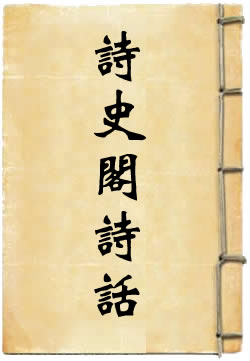 詩史閣詩話